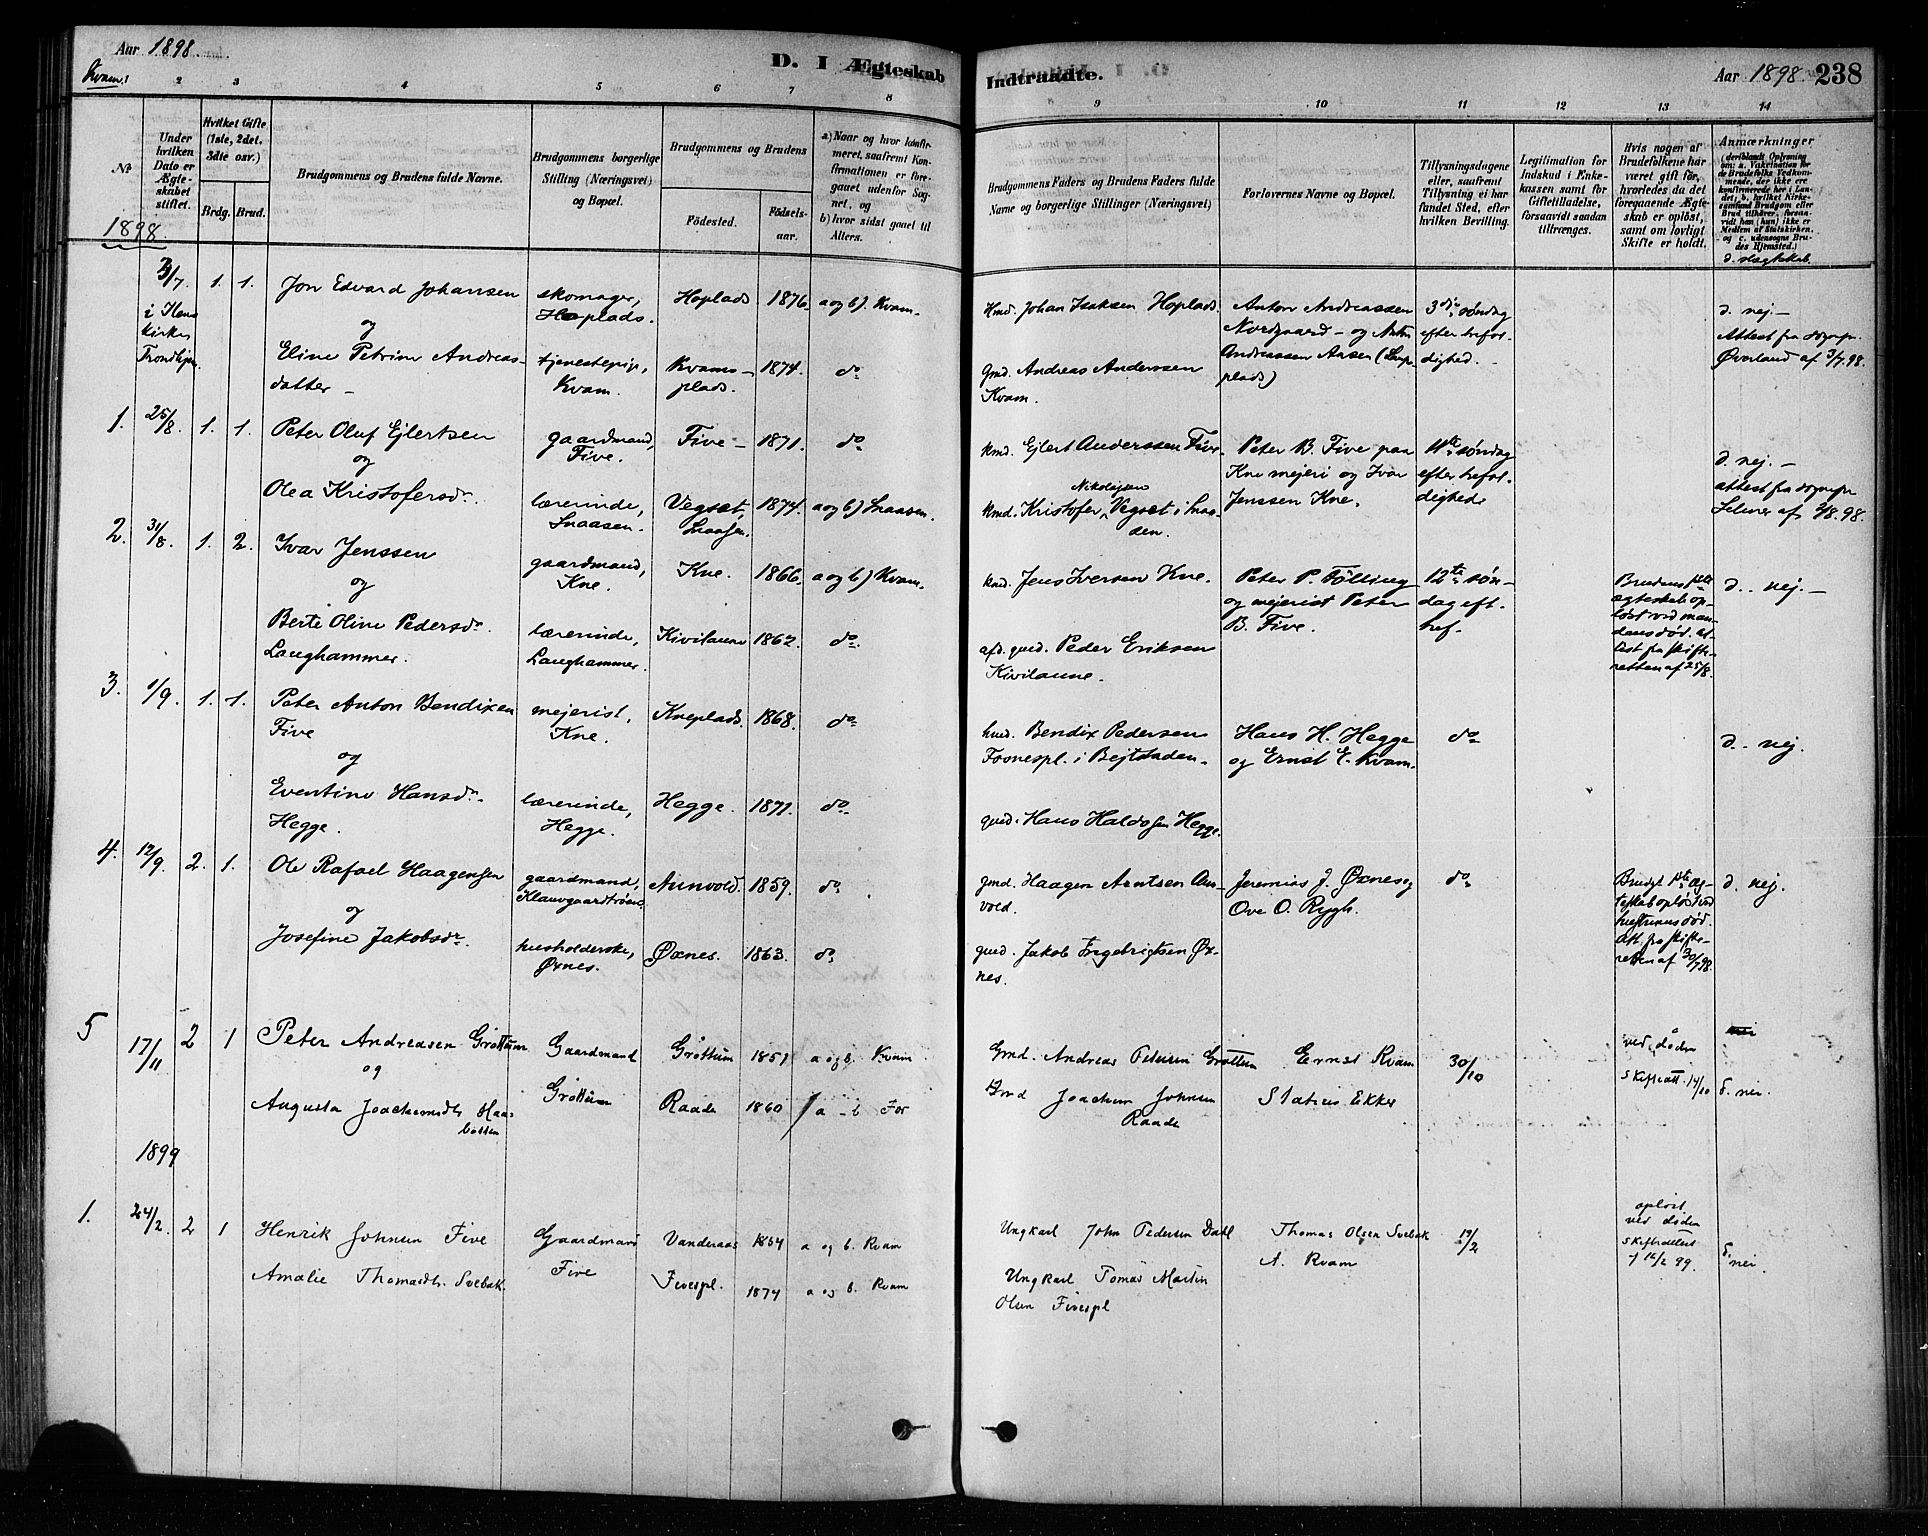 Aar 1898.
Kvam.
D. I Ægteskab
Indtraadte.
Aar 1898. 238
2 3 4 5 6 7 8 9 10 11 12 13 14
No
Under hvilken Dato er Ægteskabet stiftet.
Hvilket Gifte (1ste, 2det, 3die osv.)
Brdg. Brud.
Brudgommens og Brudens fulde Navne.
Brudgommens borgerlige Stilling (Næringsvei) og Bopæl.
Brudgommens og Brudens
Födested.
Födselsaar.
a) Naar og hvor konfirmeret, saafremt Konfirmationen er foregaaet udenfor Sognet, og
b) hvor sidst gaaet til Alters.
Brudgommens Faders og Brudens Faders fulde Navne og borgerlige Stillinger (Næringsvei)
Forlovernes Navne og Bopæl.
Tillysningsdagene eller, saafremt Tillysning ei har fundet Sted, efter hvilken Bevilling.
Legitimation for Indskud i Enkekassen samt for Giftetilladelse, forsaavidt saadan tiltrænges.
Hvis nogen af Brudefolkene har været gift för, hvorledes da det foregaaende Ægteskab er oplöst, samt om lovligt Skifte er holdt.
Anmærkninger
(deriblandt Oplysning om: a. Vakcination for de Brudefolks Vedkommende, der ikke ere konfirmerede her i Landet; b. hvilket Kirkesamfund Brudgom eller Brud tilhører, forsaavidt han (hun) ikke er Medlem af Statskirken, og c. udensogns Brudes Hjemsted.)
d. slægtskab.
1898.
3/7. 1. 1. Jon Edvard Johansen skomager, Hoplads. Hoplads 1876. a og b). Kvam. Hmd. Johan Isaksen Hoplads. Anton Andreassen Nordgaard - og Anton Andreassen Aasen 3die søndag efter trefoldighed. d. nej.
i kirke Trondhjem
og
Eline Petrine Andreasdatter - tjenestepige, Kvam. Kvams- plads. 1874. do Gmd. Andreas Anderssen Kvam. Attest fra Øverland af 3/7.98.
1. 25/8. 1. 1. Peter Oluf Ejlertsen gaardmand, Five. Five - 1871. do Ejlert Anderssen Five. Peter B. Five paa Kne mejeri og Ivar Jenssen Kne. 11te søndag efter trefoldighed d. nej. -
og
Olea Kristofersdr. lærerinde, Snaasen. Vegset, Snaasen. 1874. a og b) Snaasen. Kristofer Nikolajsen Vegset i Snaasen. attest fra af 2/8.98.
2. 31/8. 1. 2. Ivar Jenssen gaardmand, Kne. Kne. 1866. a og b) Kvam. Jens Iversen Kne. Peter P. Følling og mejerist Peter B. Five. 12te søndag eft. tref. Brudens 1ste ægteskab opløst ved mandens død. Attest fra skifteretten af 25/8. d. nej. -
og
Berte Oline Pedersdr. Langhammer. lærerinde, Langhammer. Kivilaune 1862. do. afd. gmd. Peder Eriksen Kivilaune.
3. 1/9. 1. 1. Peter Anton Bendixen Five mejerist, Kne. Kneplads. 1868. do hmd. Bendix Pedersen Fosnespl. i Bejtstaden. Hans H. Hegge og Ernst E. Kvam. do d. nej.
og
Eventine Hansdr. Hegge. lærerinde, Hegge. Hegge. 1871. do. gmd. Hans Haldosen Hegge.
4. 12/9. 2. 1. Ole Rafael Haagensen gaardmand, Aunvold. 1859. do gmd. Haagen Arntsen Aunvold. Jeremias J. Øxnes og Ove O. Rygh. do Brudgs 1ste ægteskab opløst ved hustruens død. Att. fra skifteretten af 30/7 98. d. nej.
og
Josefine Jakobsdr. husholderske, Øxnes. Øxnes. 1863. do gmd. Jakob Ingebrigtsen Øxnes.
5 17/11 2 1 Peter Andreasen Grøttum Gaardmand Grøttum Grøttum 1857 a og b. Kvam Gmd. Andreas Petersen Grøttum Ernst Kvam 30/10 ved døden Skifteatt. 14/10
og
Augusta Joachimsdtr. Raade 1860 a - b For Gmd Joachim Johnsen Raade Statius Ekker d. nei.
1899
1. 24/2. 2 1 Henrik Johnsen Five Gaardmand Five Vanderaas 1854 a og b. Kvam Ungkarl John Pedersen Dahl Thomas Olsen Svebak 19/2 opløst ved døden Skifteattest 14/2 99. d. nei
Amalie Thomasdtr. Svebak. Fivespl. 1874 a og b. Kvam Ungkarl Tomas Martin Olsen Fivespl A. Kvam